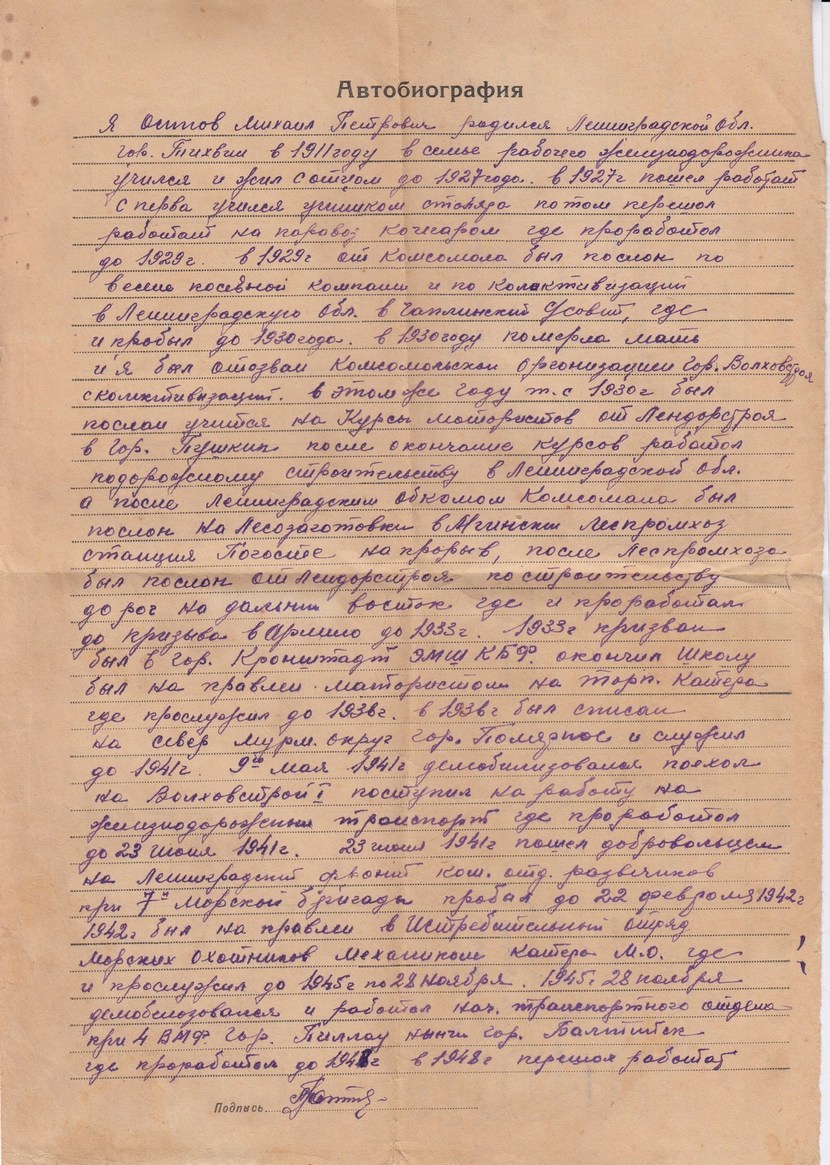 Автобиография
Я Осипов Михаил Петрович родился Ленинградской Обл.
гор. Тихвин в 1911 году в семье рабочего железнодорожника
учился и жил с отцом до 1927 года. в 1927 г пошел работат
с перва учился учеником столяра потом перешол
работат на паровоз кочегаром где проработол
до 1929 г. в 1929 г от Комсомола был послон по
весене посевной компании и по колективизаций
в Ленинградскую Обл. в Совит, где
и пробыл до 1930 года. в 1930 году померла мать
и я был отозван Комсомольской организацией гор. Волховстроя
с колективизаций. в этом же году т.с 1930 г был
послан учится на Курсы мотористов от Лендорстроя
в гор. Пушкин после окончание курсов работол
подорожному строительству в Ленинградской Обл.
а после Ленинградским обкомом Комсомола был
послон на Лесозаготовки в Мгински леспромхоз
станция Погостье на прорыв, после Леспромхоза
был послон от Лендорстроя по строительству
дорог на дальни восток где и проработал
до призыва в Армию до 1933 г. 1933 г призван
был в гор. Кронштадт ЭМШ КБФ. окончил Школу
был на правлен мотористом на торп. Катера
где прослужил до 1938 г. в 1938 г был списан
на север Мурм. округ гор. Полярное и служил
до 1941 г. 9го мая 1941 г демобилизовался поехол
на Волховстрой I поступил на работу на
железнодорожны транспорт где проработол
до 23 июня 1941 г. 23 июня 1941 г пошел добровольцем
на Ленинградский фронт ком. отд. развечиков
при 7й Морской бригады пробыл до 22 февроля 1942 г
1942 г был на правлен в Истребительный отряд
Морских Охотников Механиком Катера М.О. где
и прослужил до 1945 г по 28 ноября. 1945 г 28 ноября
демобелизовался и работол нач. транспортного отдела
при 4 ВМФ гор. Пиллау нынчи гор. Балтитск
где проработол до 1948 г в 1948 г перешол работат
Подпись